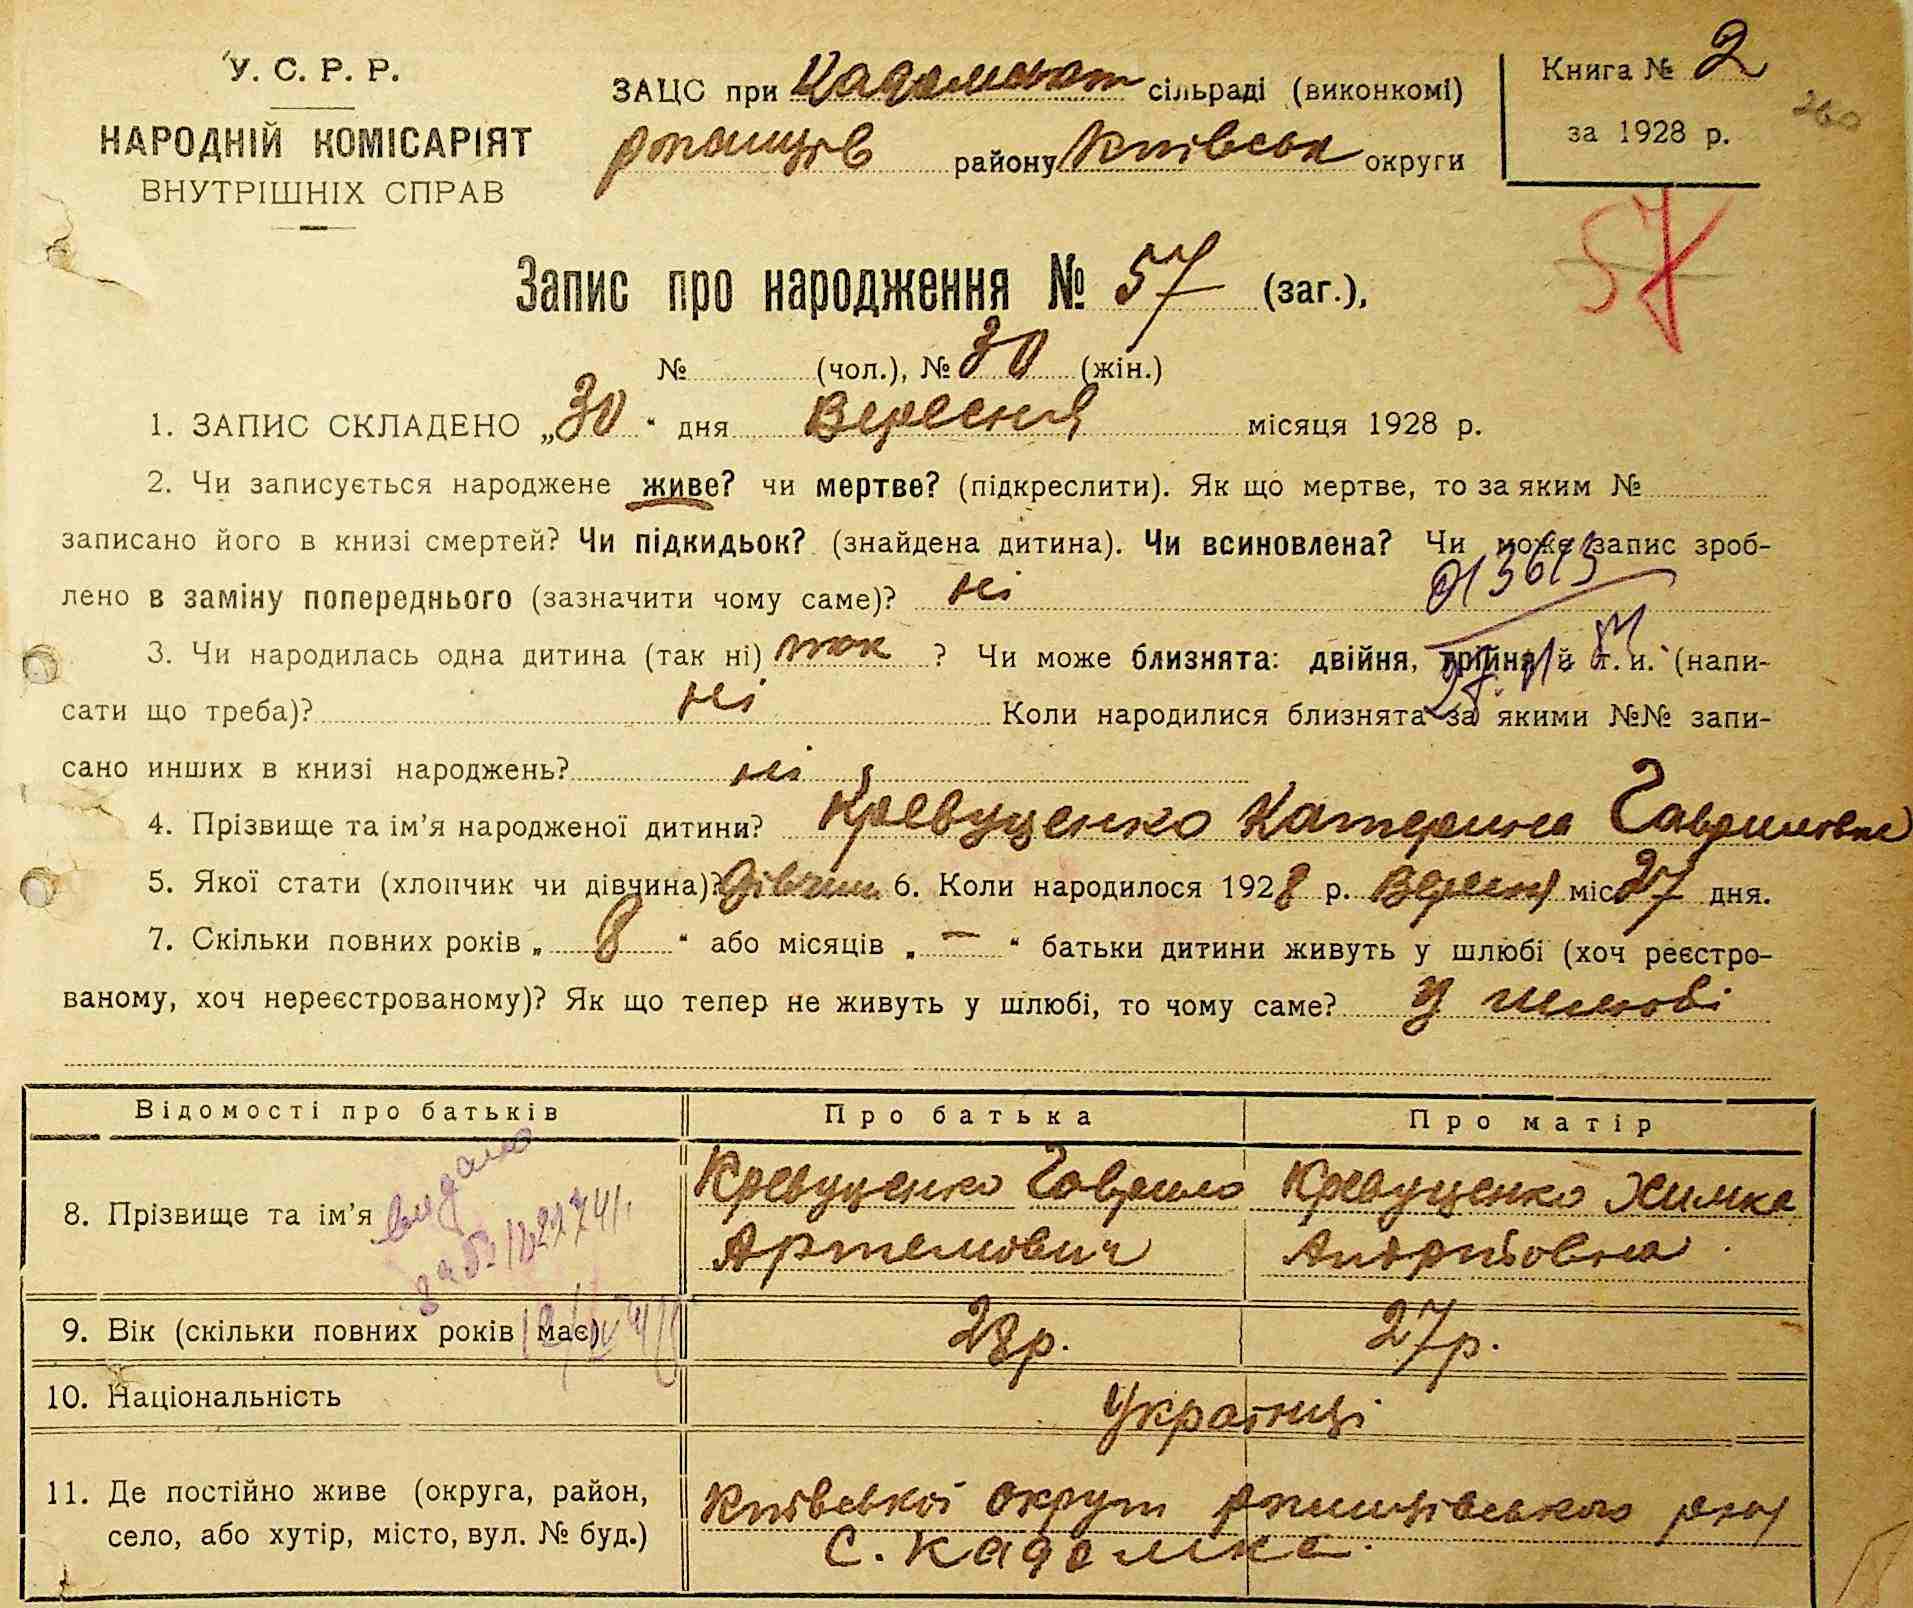 У. С. Р. Р.
НАРОДНІЙ КОМІСАРІЯТ
ВНУТРІШНІХ СПРАВ
ЗАЦС при Кадомськ сільраді (виконкомі)
ржищів району Київськ округи
Книга № 2
за 1928 р.
260
57
Запис про народження № 57 (заг.),
№ (чол.), № 30 (жін.)
1. ЗАПИС СКЛАДЕНО „30“ дня Вересня місяця 1928 р.
2. Чи записується народжене живе? чи мертве? (підкреслити). Як що мертве, то за яким №
записано його в книзі смертей? Чи підкидьок? (знайдена дитина). Чи всиновлена? Чи може запис зроб-
лено в заміну попереднього (зазначити чому саме)? ні
3. Чи народилась одна дитина (так ні) так ? Чи може близнята: двійня, трійня й т. и. (напи-
сати що треба)? ні Коли народилися близнята за якими №№ запи-
сано инших в книзі народжень? ні
4. Прізвище та ім'я народженої дитини? Кревуценко Катерина Гавриловна
5. Якої стати (хлопчик чи дівчина)? дівчин 6. Коли народилося 1928 р. Вересня міс 27 дня.
7. Скільки повних років „ 8 “ або місяців „ — “ батьки дитини живуть у шлюбі (хоч реєстро-
ваному, хоч нереєстрованому)? Як що тепер не живуть у шлюбі, то чому саме? У шлюбі
Відомості про батьків Про батька Про матір
8. Прізвище та ім'я Кревуценко Гаврило Кревуценко Химка
Артемович Андріівна
видано
9. Вік (скільки повних років має) 28р. 27р.
10. Національність Українці
11. Де постійно живе (округа, район, Київської округи ржищівського рну
село, або хутір, місто, вул. № буд.) с. Кадомка.